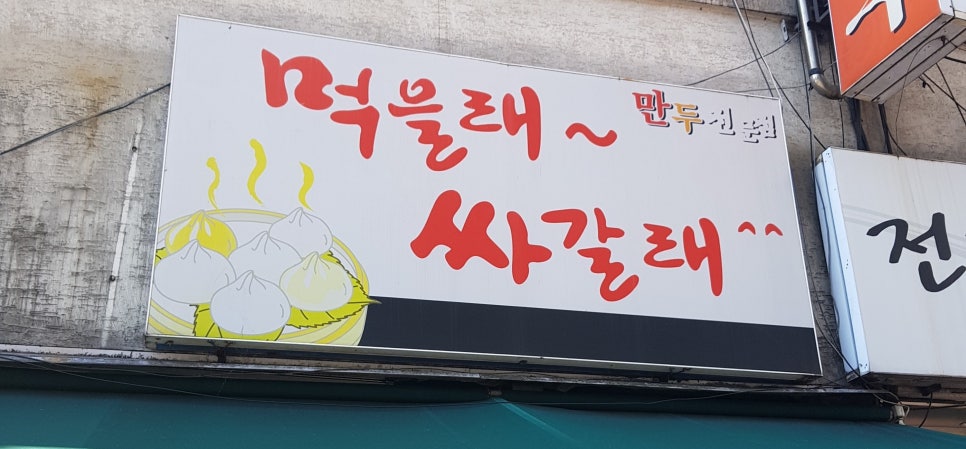 먹을래~
만두전문점
싸갈래^^
전